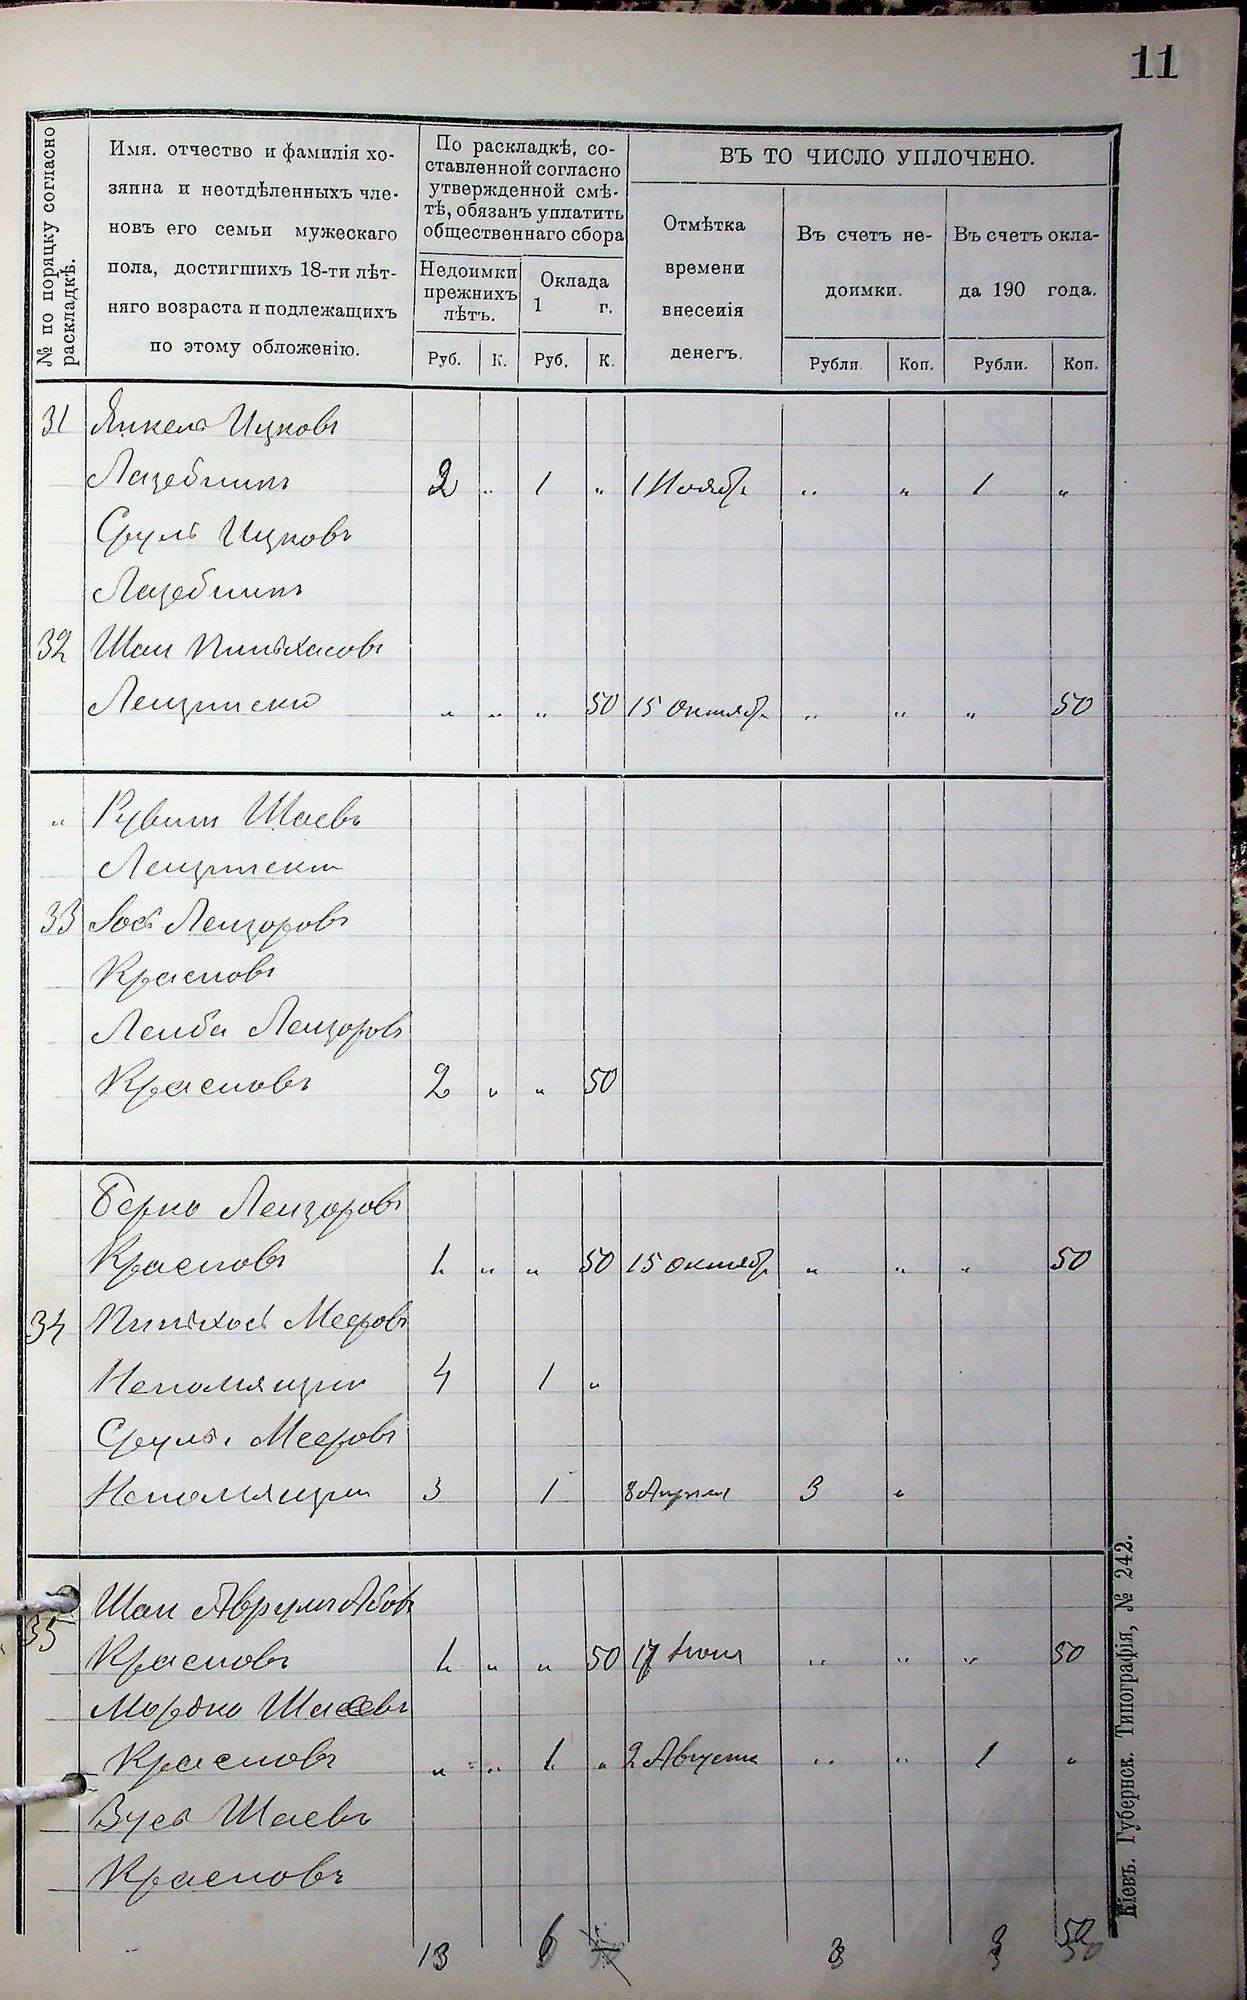 11
№ по порядку согласно раскладкѣ.
Имя. отчество и фамилія хо-
зяина и неотдѣленныхъ чле-
новъ его семьи мужескаго
пола, достигшихъ 18-ти лѣт-
няго возраста и подлежащихъ
по этому обложенію.
По раскладкѣ, со-
ставленной согласно
утвержденной смѣ-
тѣ, обязанъ уплатить
общественнаго сбора
Недоимки
прежнихъ
лѣтъ.
Оклада
1 г.
Руб. К. Руб. К.
ВЪ ТО ЧИСЛО УПЛОЧЕНО.
Отмѣтка
времени
внесенія
денегъ.
Въ счетъ не-
доимки.
Въ счетъ окла-
да 190 года.
Рубли Коп. Рубли. Коп.
31 Янкель Ицковъ
Лазебникъ 2 " 1 " 1 Ноябр. " " 1 "
Сруль Ицковъ
Лазебникъ
32 Шая Пинхасовъ
Лещинскій " " " 50 15 Октябр. " " " 50
" Рувинъ Шаевъ
Лещинскій
33 Іось Лейзоровъ
Красновъ
Лейба Лейзоровъ
Красновъ 2 " " 50
Берко Лейзоровъ
Красновъ 1 " " 50 15 Октябр. " " " 50
34 Пинхось Мееровъ
Непомящій 4 1 "
Сруль Мееровъ
Непомящій 3 1 8 Апрѣля 3 "
35 Шая Аврумъ Абовъ
Красновъ 1 " " 50 17 Іюня " " " 50
Мордко Шаевъ
Красновъ " " 1 " 2 Августа " " 1 "
Вусь Шаевъ
Красновъ
13 6 3 3 50
Кіевъ. Губернск. Типографія, № 242.